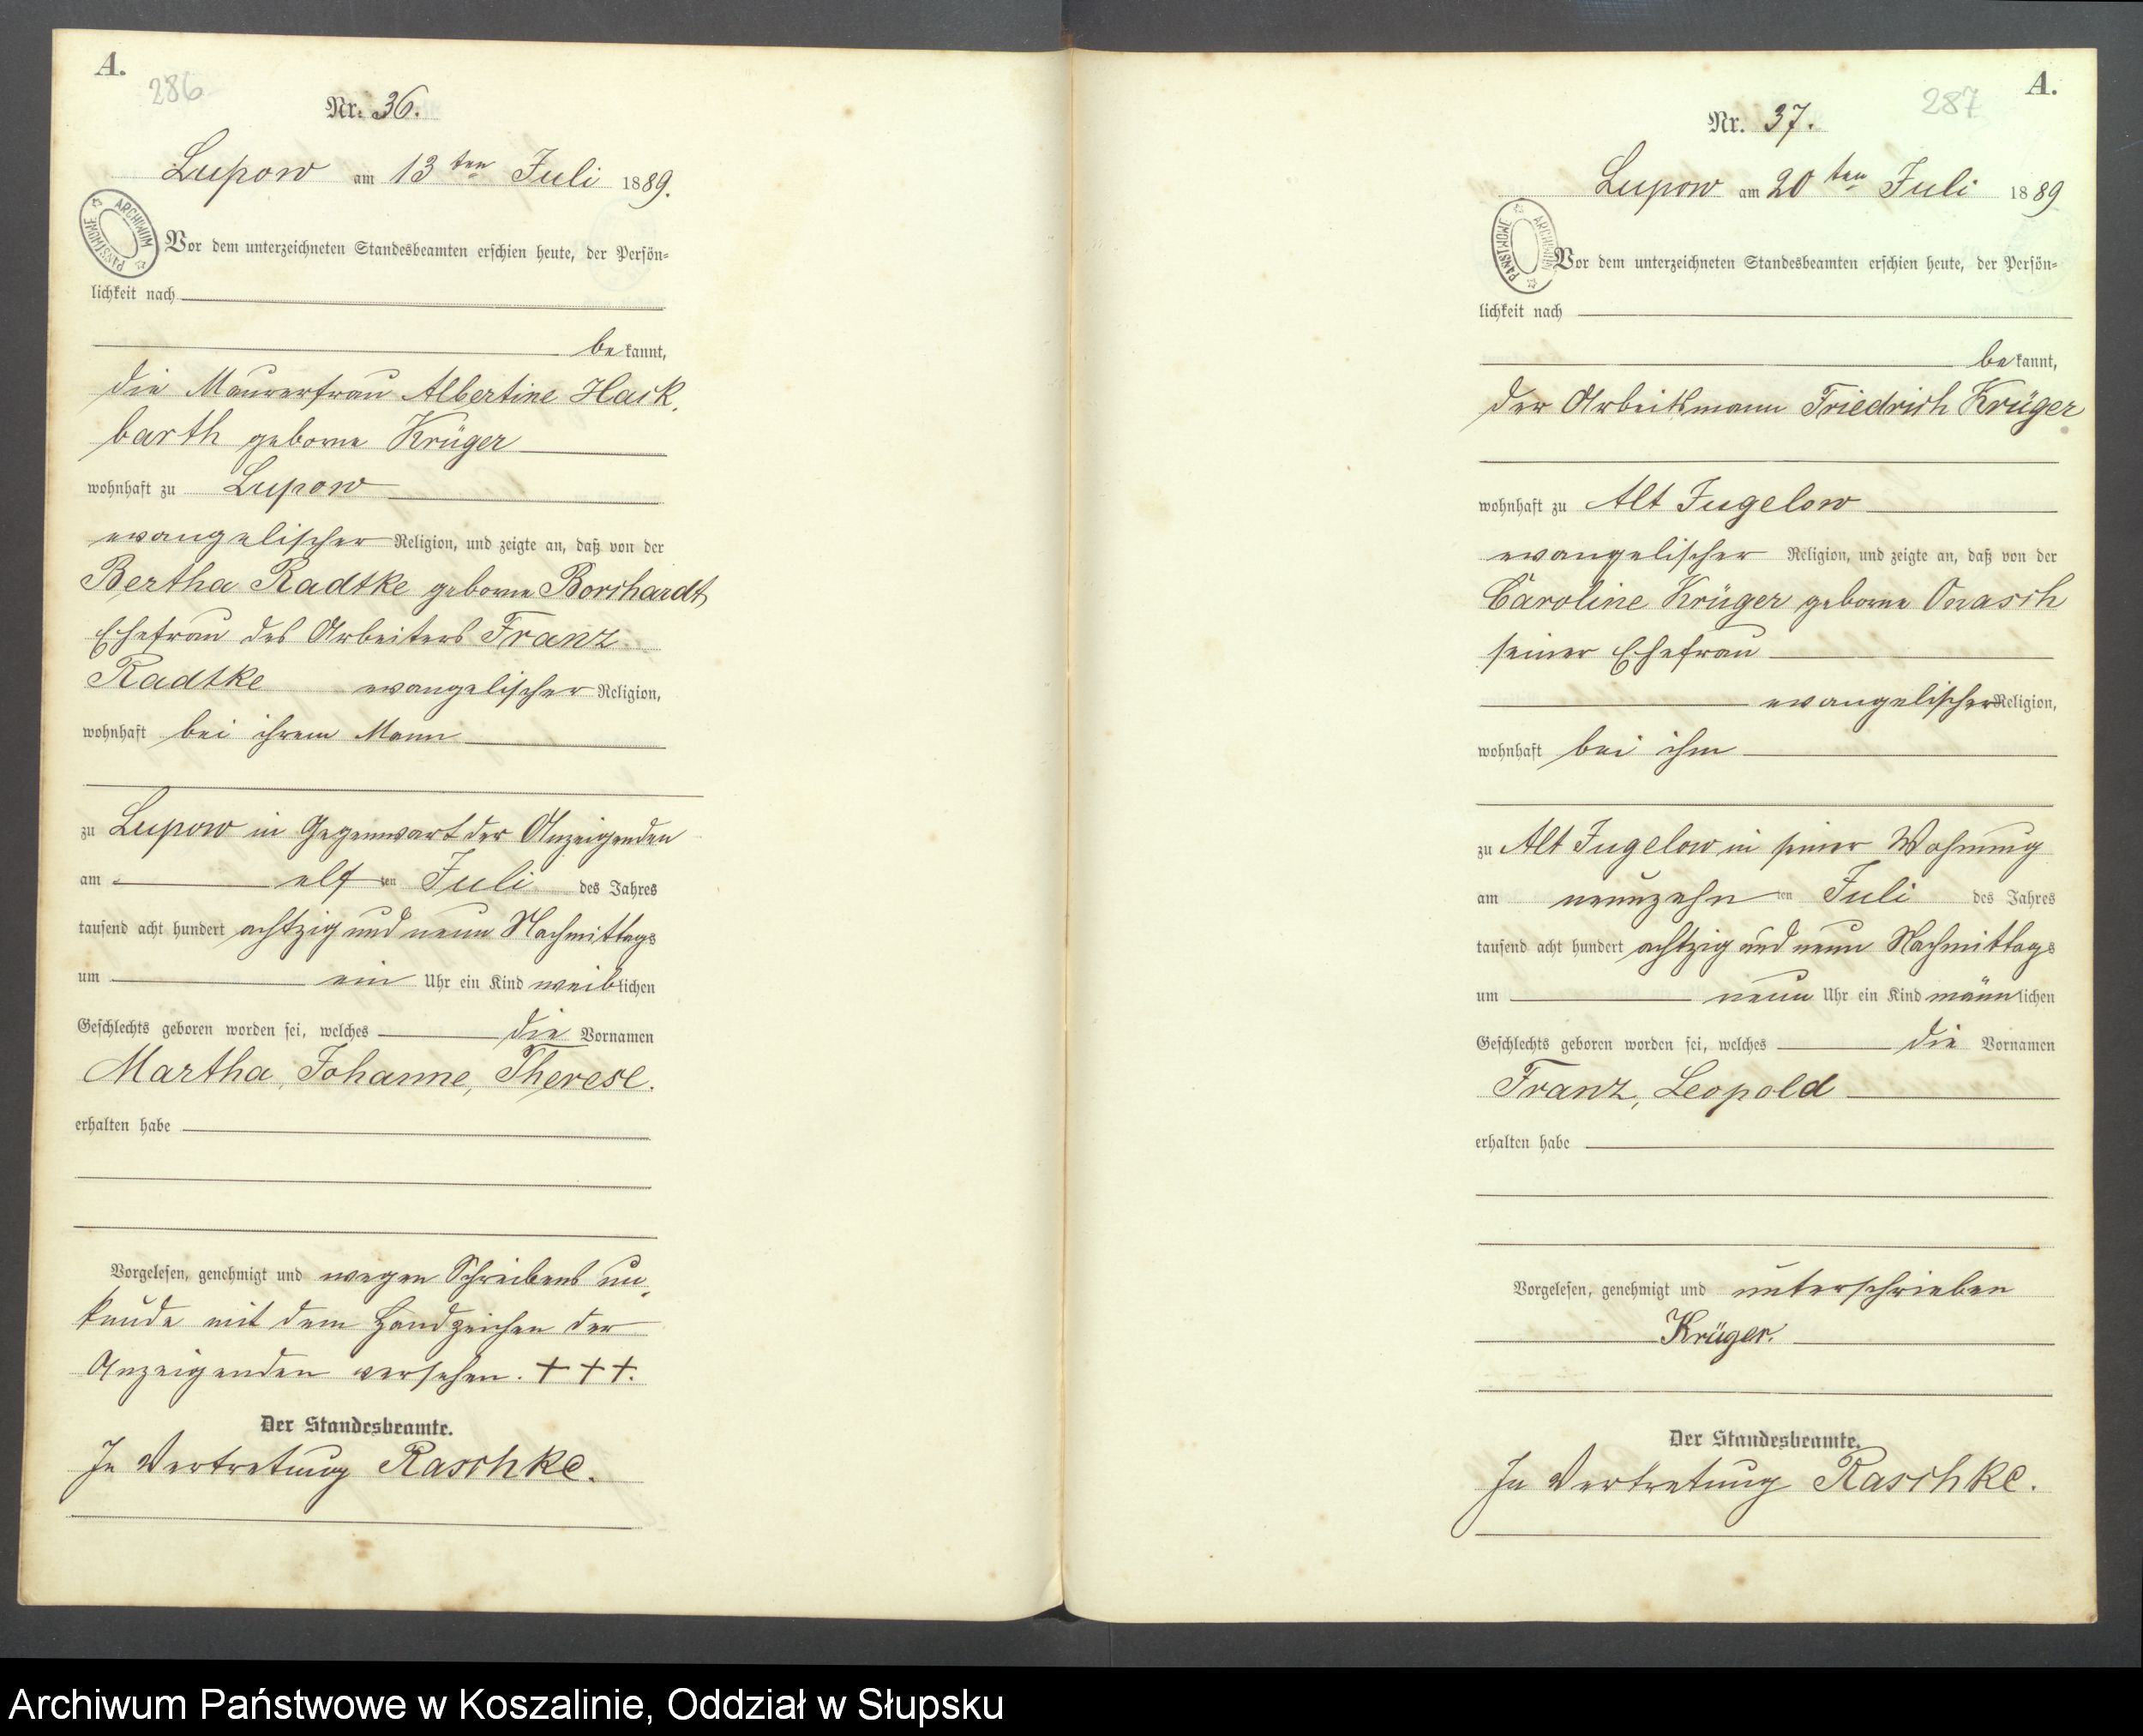 A.
286
Nr. 36.
Lupow am 13ten Juli 1889.
ARCHIWUM PAŃSTWOWE
Vor dem unterzeichneten Standesbeamten erschien heute, der Persön-
lichkeit nach
bekannt,
die Maurerfrau Albertine Hack-
barth geborne Krüger
wohnhaft zu Lupow
evangelischer Religion, und zeigte an, daß von der
Bertha Radtke geborne Borchardt
Ehefrau des Arbeiters Franz
Radtke evangelischer Religion,
wohnhaft bei ihrem Mann
zu Lupow in Gegenwart der Anzeigenden
am elften Juli des Jahres
tausend acht hundert achtzig und neun Nachmittags
um ein Uhr ein Kind weiblichen
Geschlechts geboren worden sei, welches die Vornamen
Martha, Johanne, Therese.
erhalten habe
Vorgelesen, genehmigt und wegen Schreibens un-
kunde mit dem Handzeichen der
Anzeigenden versehen. + + +.
Der Standesbeamte.
In Vertretung Raschke.
A.
287
Nr. 37.
Lupow am 20ten Juli 1889
ARCHIWUM PAŃSTWOWE
Vor dem unterzeichneten Standesbeamten erschien heute, der Persön-
lichkeit nach
bekannt,
der Arbeitsmann Friedrich Krüger
wohnhaft zu Alt Jugelow
evangelischer Religion, und zeigte an, daß von der
Caroline Krüger geborne Onasch
seiner Ehefrau
evangelischer Religion,
wohnhaft bei ihm
zu Alt Jugelow in seiner Wohnung
am neunzehnten Juli des Jahres
tausend acht hundert achtzig und neun Nachmittags
um neun Uhr ein Kind männlichen
Geschlechts geboren worden sei, welches die Vornamen
Franz, Leopold
erhalten habe
Vorgelesen, genehmigt und unterschrieben
Krüger.
Der Standesbeamte.
In Vertretung Raschke.
Archiwum Państwowe w Koszalinie, Oddział w Słupsku